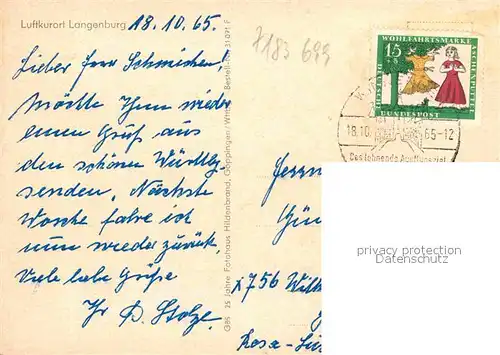 Luftkurort Langenburg
18.10.65.
7183 699
Lieber Herr Schmiechen!
Möchte Ihnen wieder
einen Gruß aus
den schönen Württbg.
senden. Nächste
Woche fahre ich
nun wieder zurück.
Viele liebe Grüße
Ihr D. Stolze
GBS 25 Jahre Fotohaus Hildenbrand, Göppingen/Württ. Bestell-Nr. 31 071 F
15
WOHLFAHRTSMARKE
ASCHENPUTTEL
DEUTSCHE
BUNDESPOST
18.10. 65-12
Das lohnende Ausflugsziel
Herrn
Gün
x756 Wilh
Rosa-Lu
privacy protection
Datenschutz